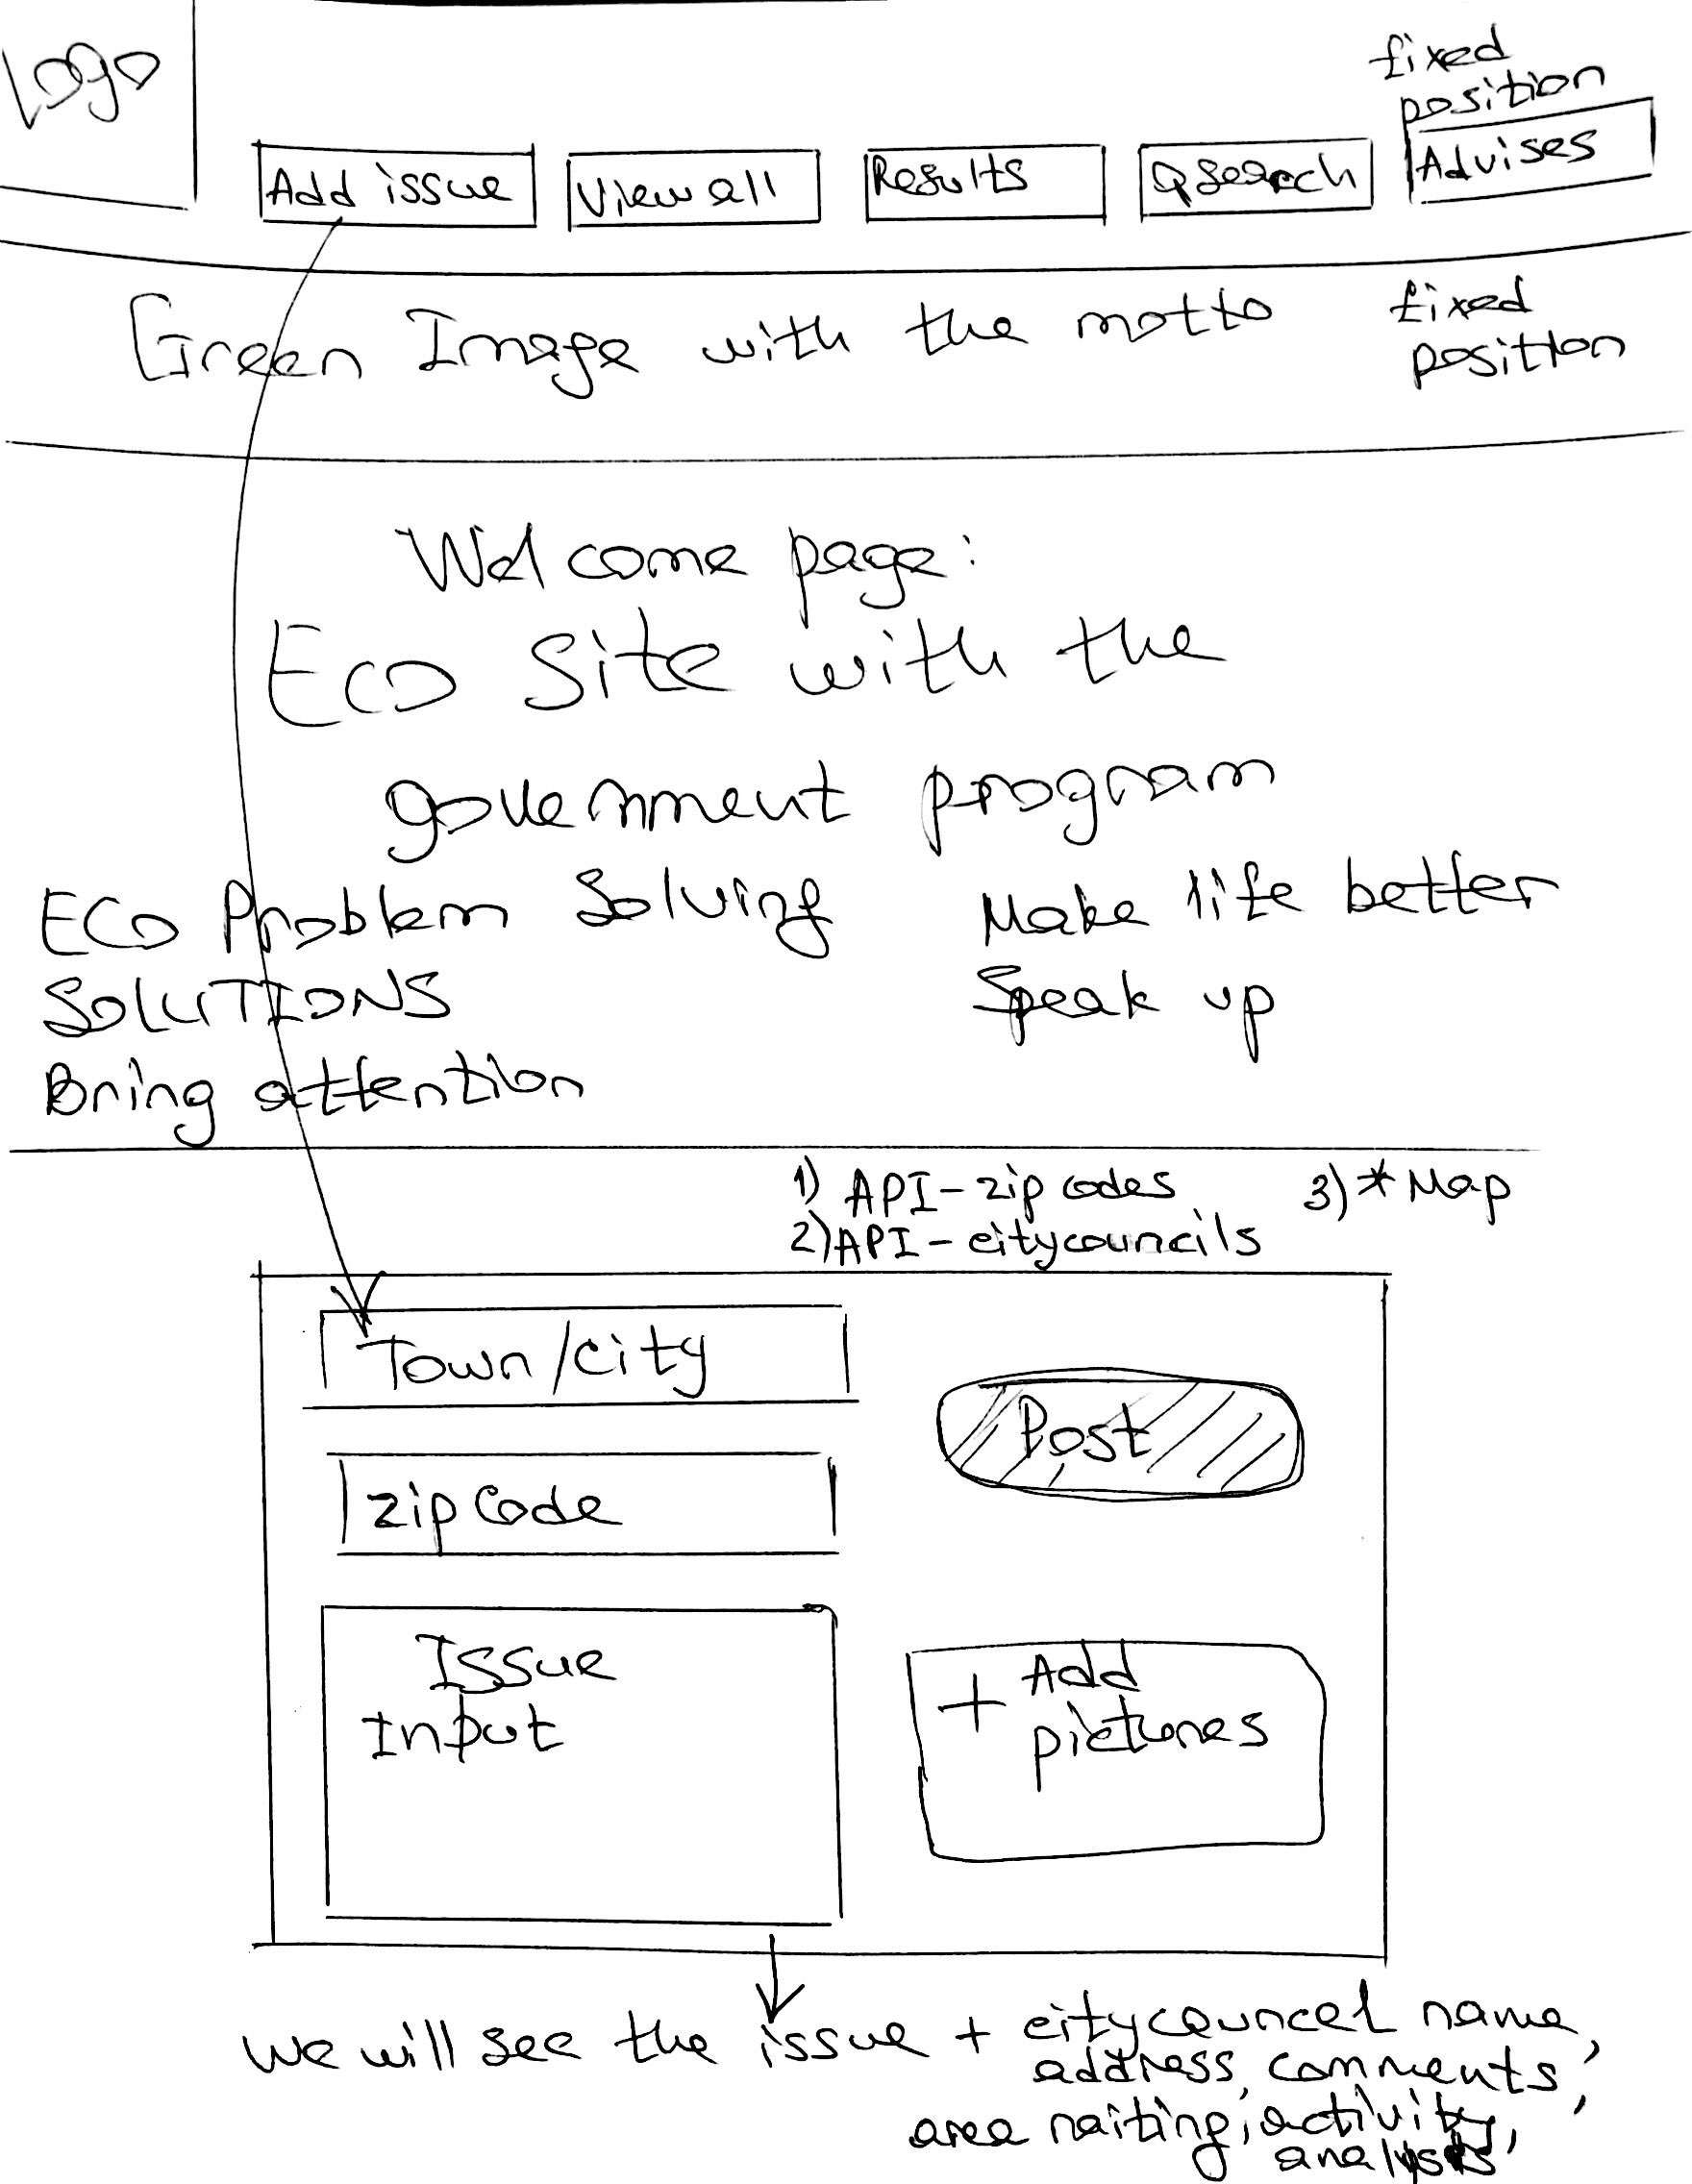 Logo
fixed
position
Add issue
View all
Results
Search
Advises
Green Image with the motto
fixed
position
Welcome page:
Eco Site with the
government program
ECO Problem Solving
SOLUTIONS
Bring attention
Make life better
Speak up
1) API-zip codes
2) API-citycouncils
3) * Map
Town/City
Zip Code
Issue
Input
Post
+ Add
pictures
We will see the issue + citycouncel name,
address, comments,
area raiting, activity,
analysis,